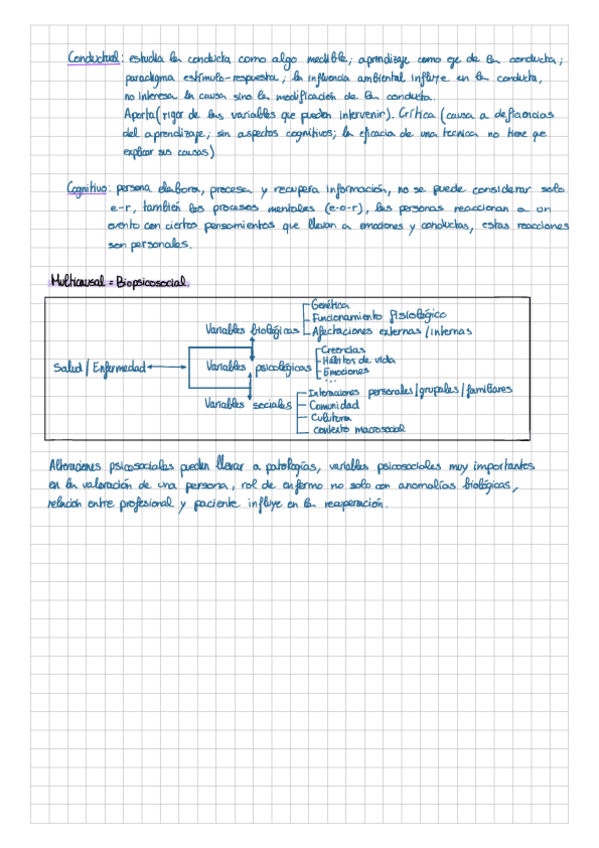 Conductual: estudia la conducta como algo medible; aprendizaje como eje de la conducta;
paradigma estímulo-respuesta; la influencia ambiental influye en la conducta,
no interesa la causa sino la modificación de la conducta.
Aporta (rigor de las variables que pueden intervenir). Crítica (causa a deficiencias
del aprendizaje; sin aspectos cognitivos; la eficacia de una tecnica no tiene qe
explicar sus causas)
Cognitivo: persona elabora, procesa y recupera información, no se puede considerar solo
e-r, también los procesos mentales (e-o-r), las personas reaccionan a un
evento con ciertos pensamientos que llevan a emociones y conductas, estas reacciones
son personales.
Multicausal = Biopsicosocial.
Genética
Funcionamiento fisiológico
Variables biológicas
Afectaciones externas/internas
Creencias
Hábitos de vida
Salud/Enfermedad
Variables psicológicas
Emociones
...
Interacciones personales/grupales/familiares
Variables sociales
Comunidad
Cultura
contexto macrosocial
Alteraciones psicosociales pueden llevar a patologías, variables psicosociales muy importantes
en la valoración de una persona, rol de enfermo no solo con anomalías biológicas,
relación entre profesional y paciente influye en la recuperación.